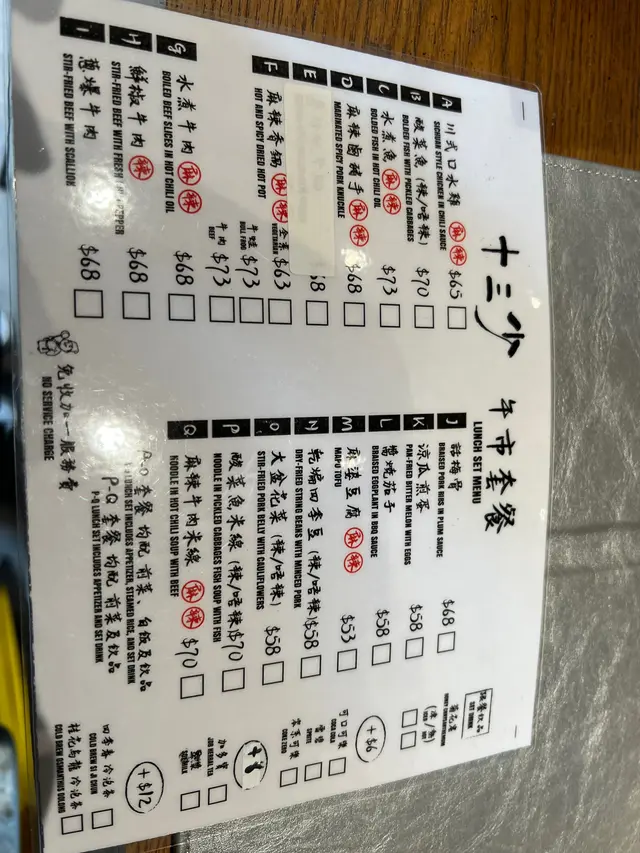 十三少 午市套餐
LUNCH SET MENU
A 川式口水雞 麻 辣 $65
SICHUAN STYLE CHICKEN IN CHILI SAUCE
B 酸菜魚 (辣/唔辣) $70
BOILED FISH WITH PICKLED CABBAGES
C 水煮魚 麻 辣 $73
BOILED FISH IN HOT CHILI OIL
D 麻辣鹵豬手 麻 辣 $68
MARINATED SPICY PORK KNUCKLE
E
F 麻辣香鍋 麻 辣 全素 $63
HOT AND SPICY DRIED HOT POT VEGETARIAN
牛蛙 $73
BULL FROG
牛肉 $73
BEEF
G 水煮牛肉 麻 辣 $68
BOILED BEEF SLICES IN HOT CHILI OIL
H 鮮椒牛肉 辣 $68
STIR-FRIED BEEF WITH FRESH PEPPER
I 蔥爆牛肉 $68
STIR-FRIED BEEF WITH SCALLION
免收加一服務費
NO SERVICE CHARGE
J 話梅骨 $68
BRAISED PORK RIBS IN PLUM SAUCE
K 涼瓜煎蛋 $58
PAN-FRIED BITTER MELON WITH EGGS
L 醬燒茄子 $58
BRAISED EGGPLANT IN BBQ SAUCE
M 麻婆豆腐 麻 辣 $53
MAPO TOFU
N 乾煸四季豆 (辣/唔辣) $58
DRY-FRIED STRING BEANS WITH MINCED PORK
O 大盆花菜 (辣/唔辣) $58
STIR-FRIED PORK BELLY WITH CAULIFLOWERS
P 酸菜魚米線 (辣/唔辣) $70
NOODLE IN PICKLED CABBAGES FISH SOUP WITH FISH
Q 麻辣牛肉米線 麻 辣 $70
NOODLE IN HOT CHILI SOUP WITH BEEF
A-O 套餐均配 前菜、白飯及飲品
LUNCH SET INCLUDES APPETIZER, STEAMED RICE, AND SET DRINK
P-Q 套餐 均配 前菜及飲品
P-Q LUNCH SET INCLUDES APPETIZER AND SET DRINK
SET DRINK
+$6
可口可樂
COKE COLA
雪碧
SPRITE
COKE ZERO
+8
加多寶
JDB HERBAL TEA
+$12
四季春 冷泡茶
COLD BREW SI JI CHUN
桂花烏龍 冷泡茶
COLD BREW OSMANTHUS OOLONG